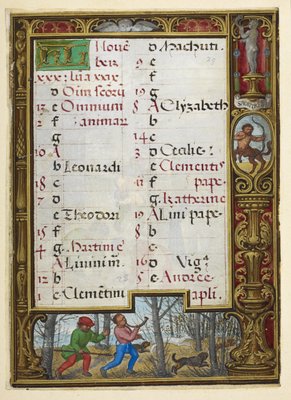 Nouē
xxx: lūa xxix
d Oīm scōrū
13 e Omnium
2 f animar
g
10 A
b Leonardi
18 c
7 d
e Theodori
15 f
4 g Martini e
A
12 b
1 c Clemētini
d Machuti.
9 e
f
g
A Elyzabeth
b
14 c
3 d Cecilie
e Clementis
f pape
g Katherine
19 A Lini pape
b
c
16 d Vigᵃ
5 e Andree
apli.